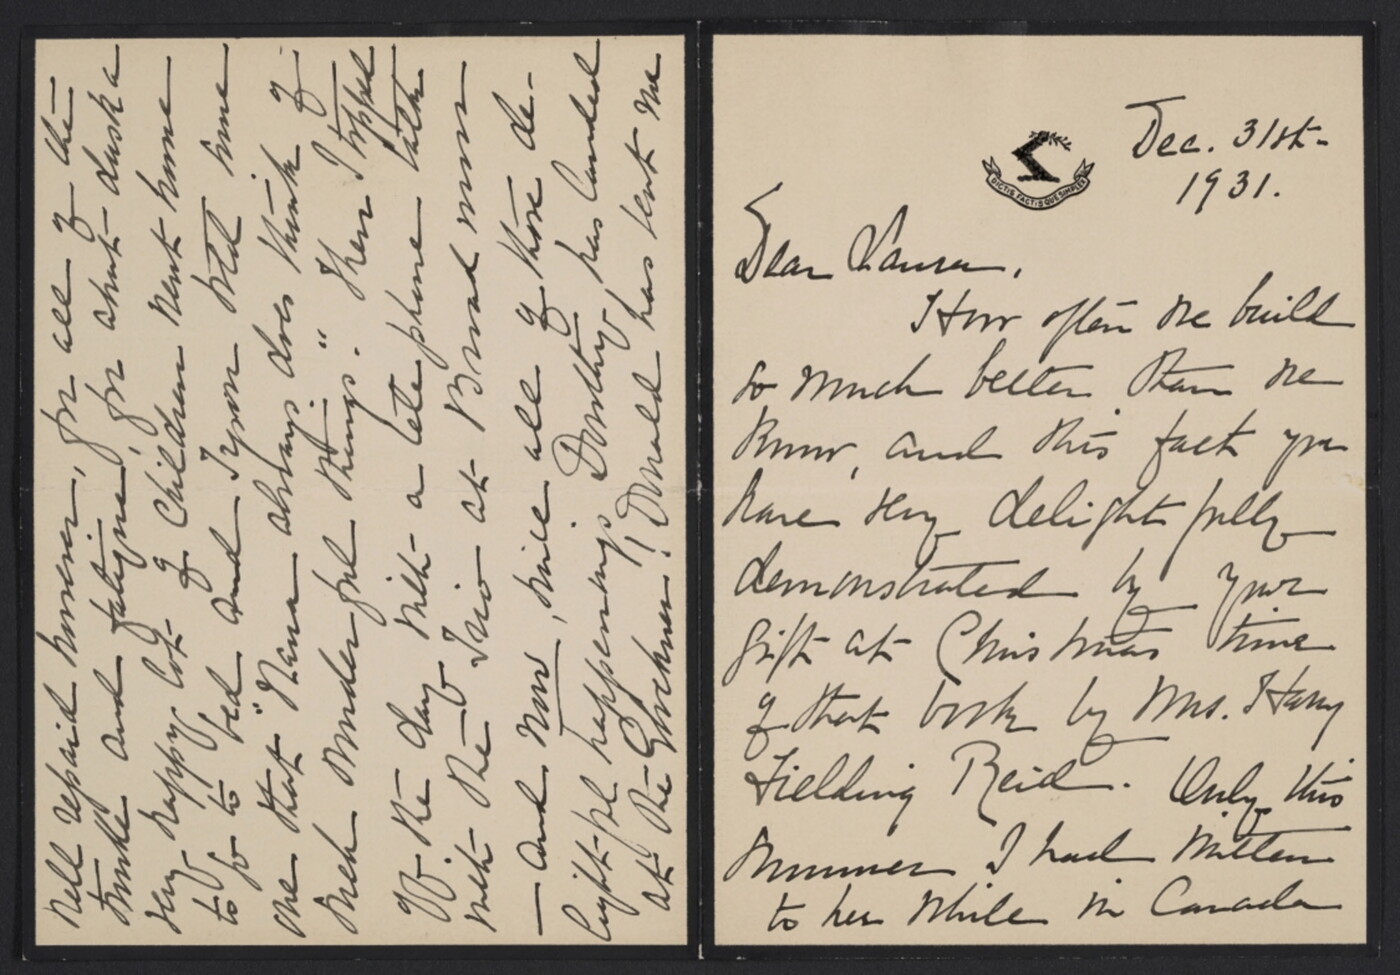 DICTIS FACTISQUE SIMPLEX
Dec. 31st-
1931.
Dear Laura,
How often we build
so much better than we
know, and this fact you
have very delightfully
demonstrated by your
gift at Christmas time
of that book by Mrs. Harry
Fielding Reid. Only this
summer I had written
to her while in Canada
Well repaid however, for all of the
trouble and fatigue, for about dusk a
very happy lot of Children went home
to go to bed and Tyson told some
one that "Nana always does think of
such wonderful things." Then I topped
off the day with a telephone talk
with the Trio at Broadmoor
— and now, since all of those de-
lightful happenings Dorothy has landed
at the Glockner! Donald has sent me